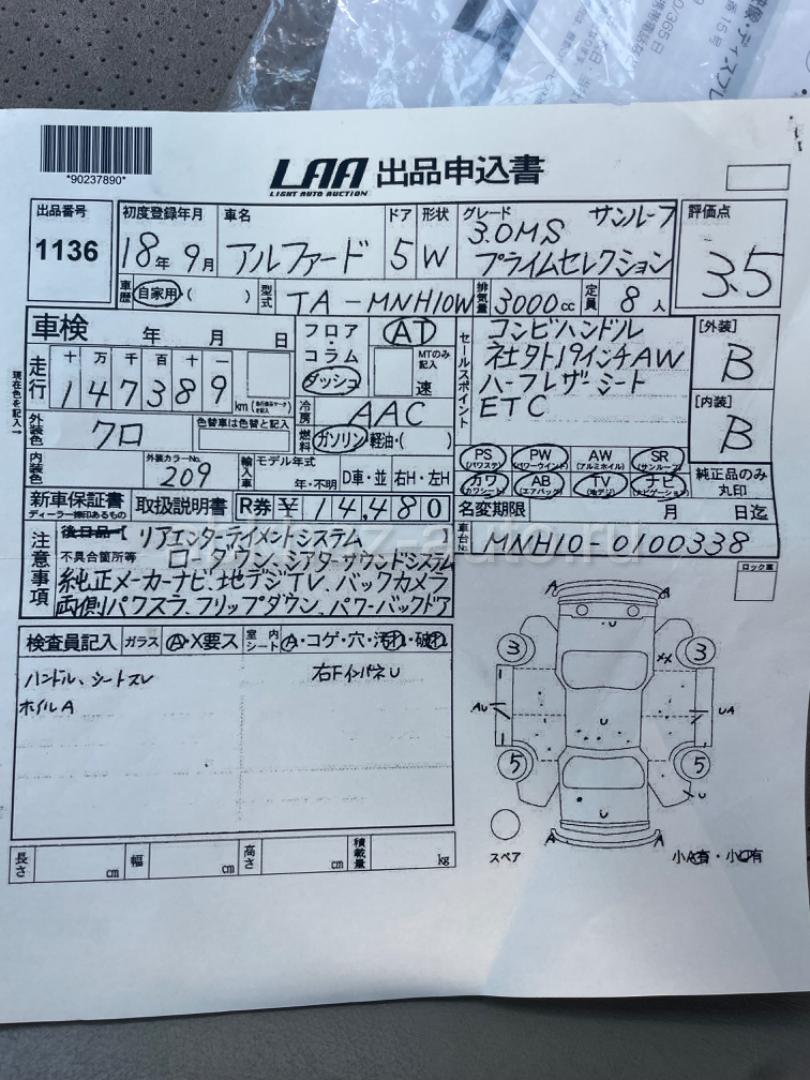 *90237890*
LAA 出品申込書
LIGHT AUTO AUCTION
出品番号
1136
初度登録年月
18年 9月
車名
アルファード
ドア
5
形状
W
グレード
サンルーフ
3.0MS
プライムセレクション
評価点
3.5
車歴
自家用・( )
型式
TA-MNH10W
排気量
3000cc
定員
8人
車検 年 月 日
フロア・
コラム
ダッシュ
AT
MTのみ記入
速
セールスポイント
コンビハンドル
社外19インチAW
ハーフレザーシート
ETC
[外装]
B
[内装]
B
現在色を記入→
走行
十 万 千 百 十 一
147389
km
外装色
クロ
色替車は色替と記入
冷房
AAC
燃料
ガソリン・軽油・( )
内装色
外装カラーNo.
209
輸入車
モデル年式
年・不明
D車・並
右H・左H
PS
(パワステ)
PW
(パワーウインド)
AW
(アルミホイル)
SR
(サンルーフ)
カワ
(カワシート)
AB
(エアバック)
TV
(地デジ)
ナビ
(ナビゲーション)
純正品のみ
丸印
新車保証書
ディーラー捺印あるもの
取扱説明書
R券 ¥ 14,480
名変期限 月 日迄
車台No.
MNH10-0100338
注意事項
後日品
不具合箇所等
リアエンターテイメントシステム
ローダウン、シアターサウンドシステム
純正メーカーナビ、地デジTV、バックカメラ
両側パワスラ、フリップダウン、パワーバックドア
ロック車
検査員記入
ガラス
A・X要ス
室内シート
A・コゲ・穴・汚れ・破れ
ハンドル、シートスレ
右FインパネU
ホイルA
A
A
U
3
3
XX
AU
U
UA
5
5
XU
U
A
A
スペア
小A有・小U有
長さ
cm
幅
cm
高さ
cm
積載量
kg